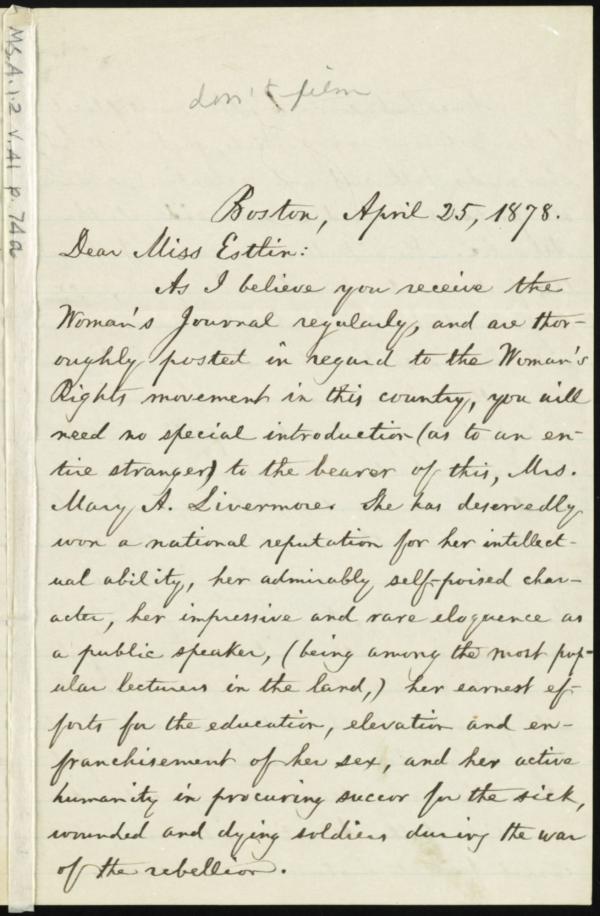 MS.A.1.2 V.41 p.74a
don't film
Boston, April 25, 1878.
Dear Miss Estlin:
As I believe you receive the
Woman's Journal regularly, and are thor-
oughly posted in regard to the Woman's
Rights movement in this country, you will
need no special introduction (as to an en-
tire stranger) to the bearer of this, Mrs.
Mary A. Livermore. She has deservedly
won a national reputation for her intellect-
ual ability, her admirably self-poised char-
acter, her impressive and rare eloquence as
a public speaker, (being among the most pop-
ular lecturers in the land,) her earnest ef-
forts for the education, elevation and en-
franchisement of her sex, and her active
humanity in procuring succor for the sick,
wounded and dying soldiers during the war
of the rebellion.